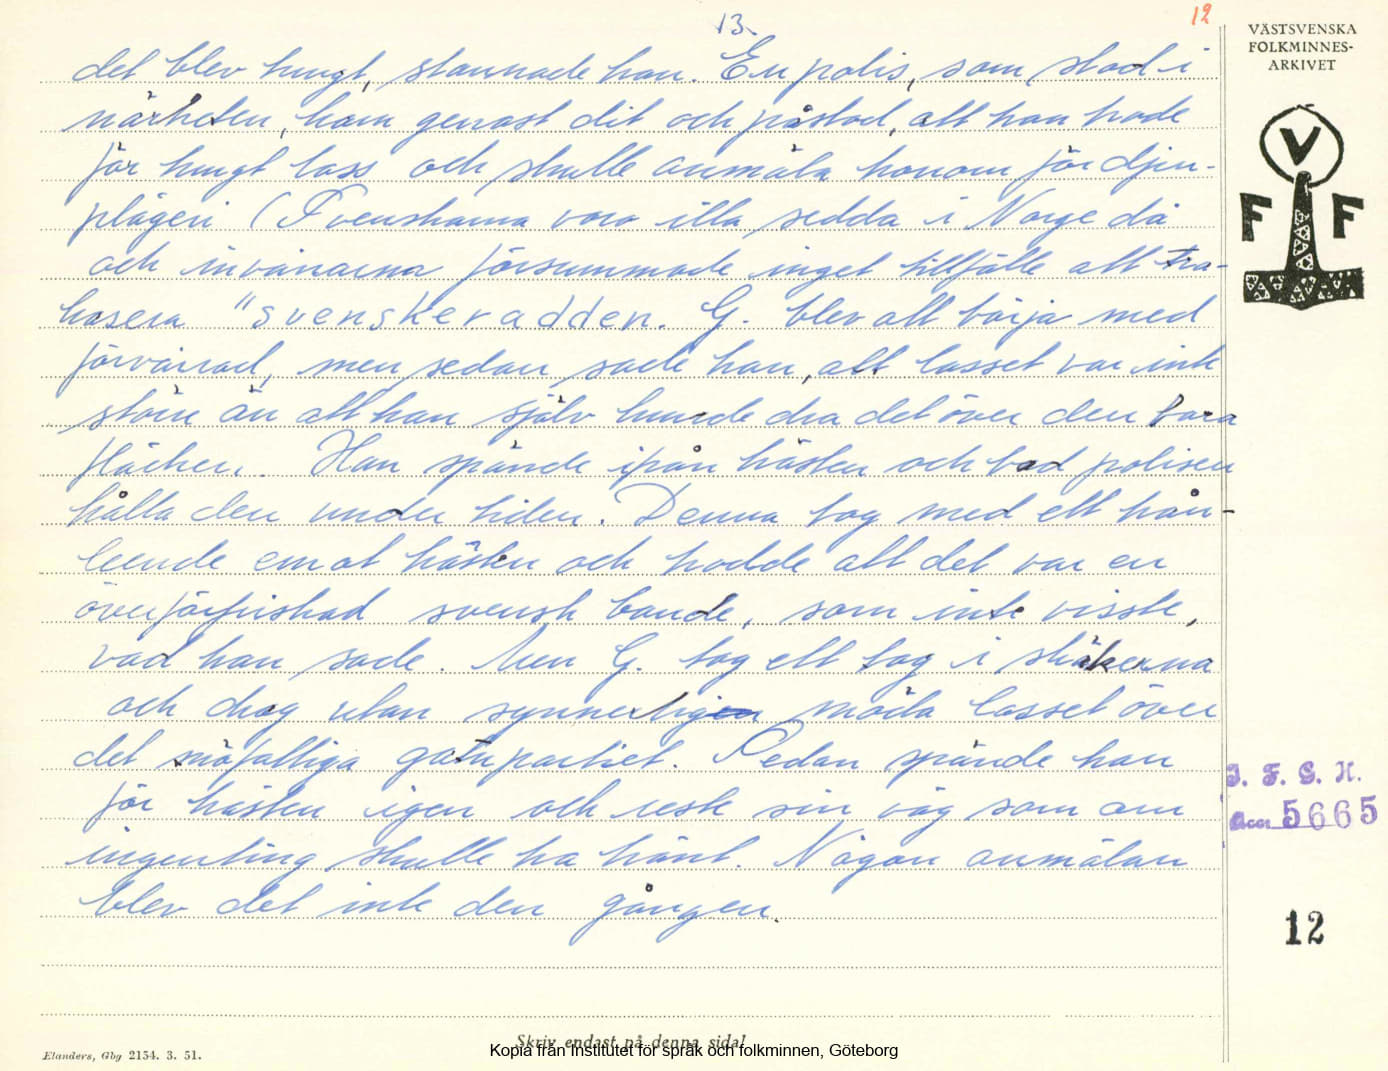 13.
12
VÄSTSVENSKA
FOLKMINNES-
ARKIVET
V
F F
det blev tungt, stannade han. En polis, som stod i
närheten, kom genast dit och påstod, att han hade
för tungt lass och skulle anmäla honom för djur-
plågeri (Svenskarna voro illa sedda i Norge då
och invånarna försummade inget tillfälle att tra-
kasera "svenskeradden. G. blev att börja med
förvånad, men sedan sade han, att lasset var inte
större än att han själv kunde dra det över den bara
fläcken. Han spände ifrån hästen och bad polisen
hålla den under tiden. Denna tog med ett hån-
leende emot hästen och trodde att det var en
överförfriskad svensk bonde, som inte visste,
vad han sade. Men G. tog ett tag i skäkerna
och drog utan synnerlig möda lasset över
det snöfattiga gatupartiet. Sedan spände han
för hästen igen och reste sin väg som om
ingenting skulle ha hänt. Någon anmälan
blev det inte den gången.
I. F. G. H.
Acc 5665
12
Skriv endast på denna sida!
Elanders, Gbg 2154. 3. 51.
Kopia från Institutet för språk och folkminnen, Göteborg